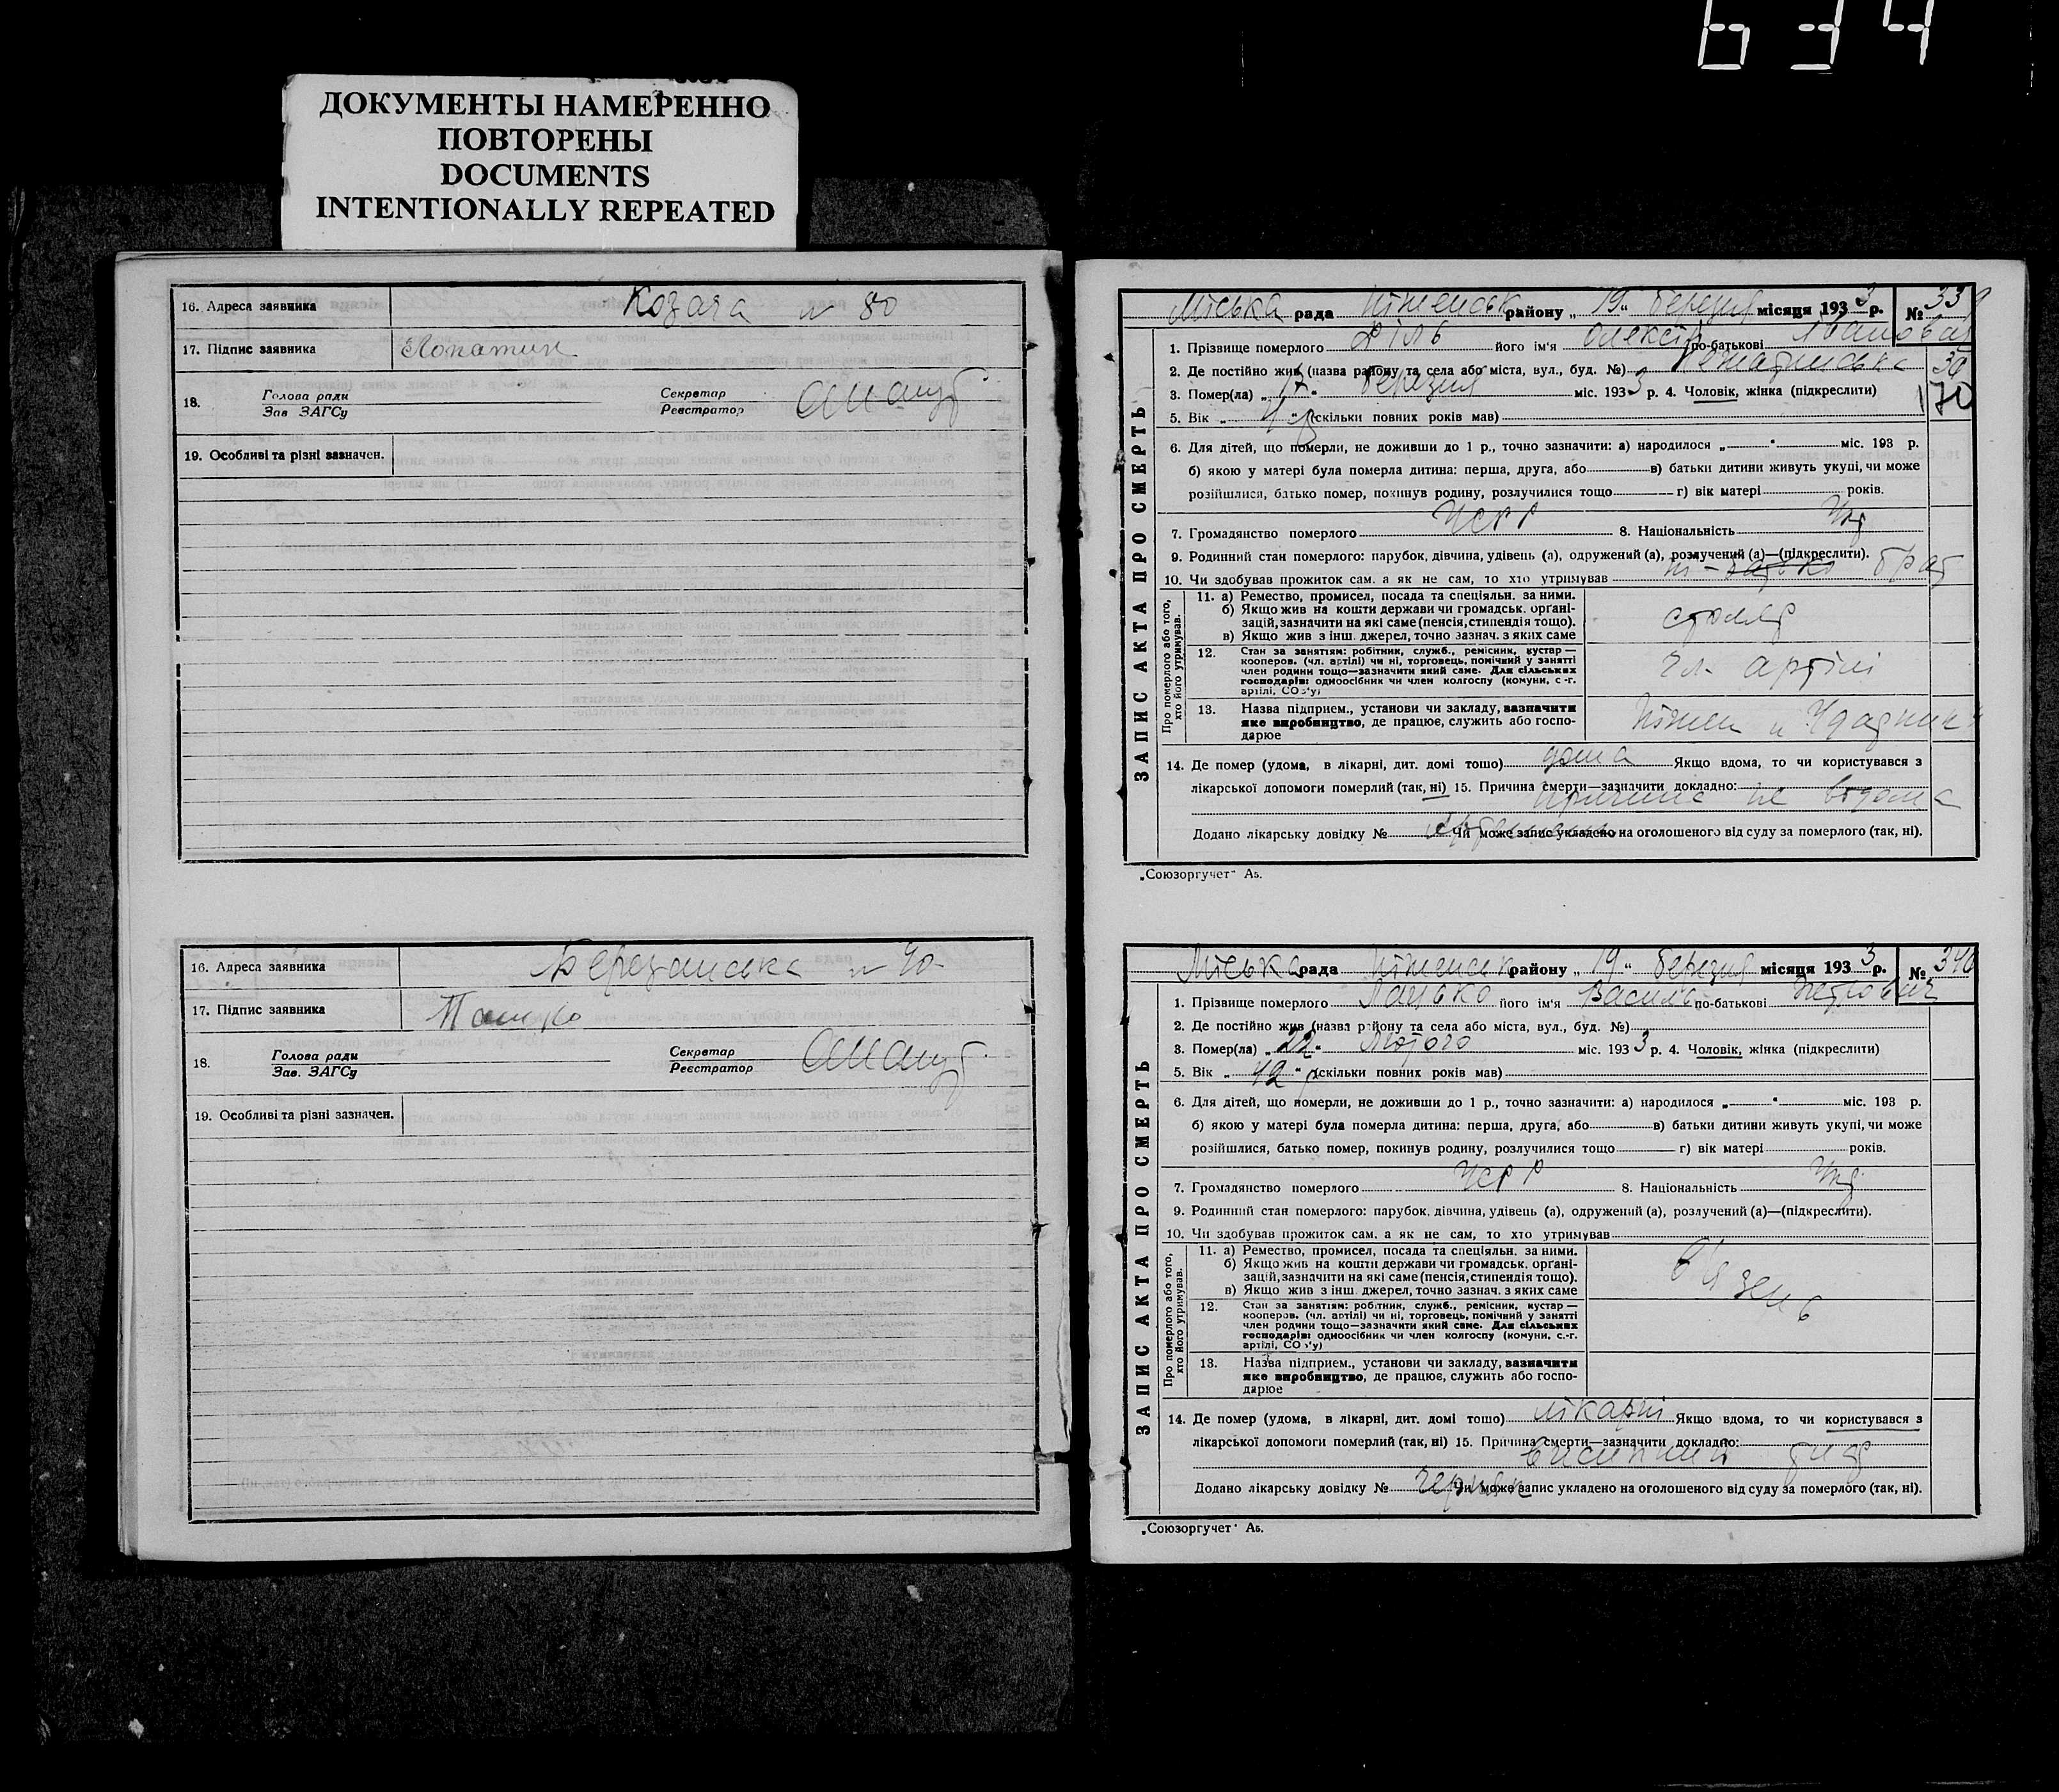 634
ДОКУМЕНТЫ НАМЕРЕННО
ПОВТОРЕНЫ
DOCUMENTS
INTENTIONALLY REPEATED
16. Адреса заявника Козача № 80
17. Підпис заявника Лопатин
18. Голова ради Секретар
Зав ЗАГСу Реєстратор
19. Особливі та різні зазначен.
16. Адреса заявника № 40
17. Підпис заявника
18. Голова ради Секретар
Зав. ЗАГСу Реєстратор
19. Особливі та різні зазначен.
ЗАПИС АКТА ПРО СМЕРТЬ
Міська рада Ніженськ району „19“ березня місяця 1933 р. № 339
1. Прізвище померлого його ім'я Олексій по-батькові Іванович
2. Де постійно жив (назва району та села або міста, вул., буд. №) 36
3. Помер(ла) „17“ березня міс. 1933 р. 4. Чоловік, жінка (підкреслити) 170
5. Вік „ “ (скільки повних років мав)
6. Для дітей, що померли, не доживши до 1 р., точно зазначити: а) народилося „ “ міс. 193 р.
б) якою у матері була померла дитина: перша, друга, або в) батьки дитини живуть укупі, чи може
розійшлися, батько помер, покинув родину, розлучилися тощо г) вік матері років.
7. Громадянство померлого УСРР 8. Національність Укр
9. Родинний стан померлого: парубок, дівчина, удівець (а), одружений (а), розлучений (а)—(підкреслити).
10. Чи здобував прожиток сам, а як не сам, то хто утримував ні - батько брат
Про померлого або того, хто його утримував.
11. а) Ремество, промисел, посада та спеціяльн. за ними.
б) Якщо жив на кошти держави чи громадськ. органі-
зацій, зазначити на які саме (пенсія, стипендія тощо).
в) Якщо жив з інш. джерел, точно зазнач. з яких саме
столяр
12. Стан за занятіям: робітник, служб., ремісник, кустар —
кооперов. (чл. артілі) чи ні, торговець, помічний у занятті
член родини тощо—зазначити який саме. Для сільських
господарів: одноосібник чи член колгоспу (комуни, с.-г.
артілі, СОЗ'у)
чл. артілі
13. Назва підприєм., установи чи закладу, вазначити
яке виробництво, де працює, служить або госпо-
дарює
Ніжен
14. Де помер (удома, в лікарні, дит. домі тощо) дома Якщо вдома, то чи користувався з
лікарської допомоги померлий (так, ні) 15. Причина смерти—зазначити докладно:
причина не відома
Додано лікарську довідку № Чи може запис укладено на оголошеного від суду за померлого (так, ні).
„Союзоргучет“ Аб.
ЗАПИС АКТА ПРО СМЕРТЬ
Міська рада Ніженськ району „19“ березня місяця 1933 р. № 340
1. Прізвище померлого його ім'я Василь по-батькові Петрович
2. Де постійно жив (назва району та села або міста, вул., буд. №)
3. Помер(ла) „22“ Лютого міс. 1933 р. 4. Чоловік, жінка (підкреслити)
5. Вік „42“ р (скільки повних років мав)
6. Для дітей, що померли, не доживши до 1 р., точно зазначити: а) народилося „ “ міс. 193 р.
б) якою у матері була померла дитина: перша, друга, або в) батьки дитини живуть укупі, чи може
розійшлися, батько помер, покинув родину, розлучилися тощо г) вік матері років.
7. Громадянство померлого УСРР 8. Національність Укр
9. Родинний стан померлого: парубок, дівчина, удівець (а), одружений (а), розлучений (а)—(підкреслити).
10. Чи здобував прожиток сам, а як не сам, то хто утримував
Про померлого або того, хто його утримував.
11. а) Ремество, промисел, посада та спеціяльн. за ними.
б) Якщо жив на кошти держави чи громадськ. органі-
зацій, зазначити на які саме (пенсія, стипендія тощо).
в) Якщо жив з інш. джерел, точно зазнач. з яких саме
в'язень
12. Стан за занятіям: робітник, служб., ремісник, кустар —
кооперов. (чл. артілі) чи ні, торговець, помічний у занятті
член родини тощо—зазначити який саме. Для сільських
господарів: одноосібник чи член колгоспу (комуни, с.-г.
артілі, СОЗ'у)
13. Назва підприєм., установи чи закладу, вазначити
яке виробництво, де працює, служить або госпо-
дарює
14. Де помер (удома, в лікарні, дит. домі тощо) лікарні Якщо вдома, то чи користувався з
лікарської допомоги померлий (так, ні) 15. Причина смерти—зазначити докладно:
висипний тиф
Додано лікарську довідку № Чи може запис укладено на оголошеного від суду за померлого (так, ні).
„Союзоргучет“ Аб.